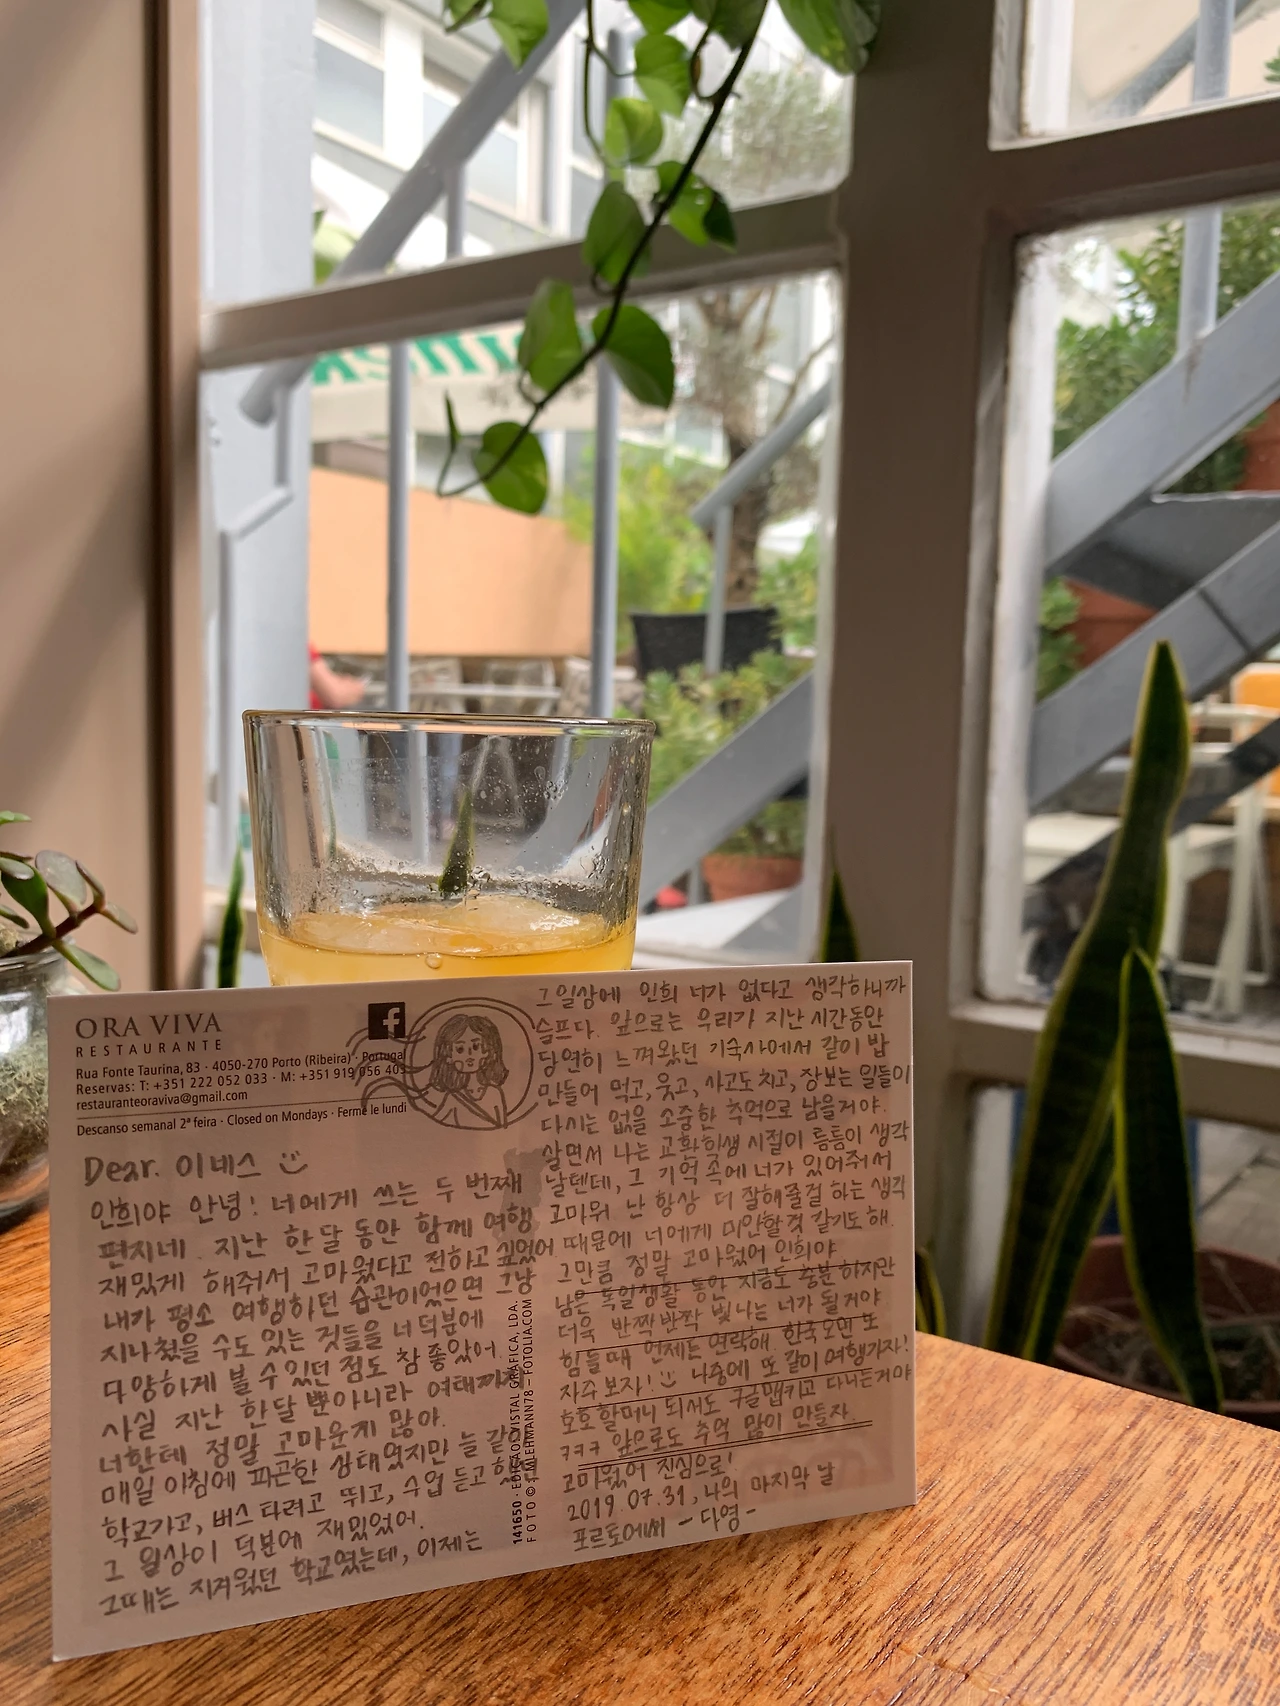 ORA VIVA
RESTAURANTE
Rua Fonte Taurina, 83 · 4050-270 Porto (Ribeira) · Portugal
Reservas: T: +351 222 052 033 · M: +351 919 056 403
restauranteoraviva@gmail.com
Descanso semanal 2ª feira · Closed on Mondays · Ferme le lundi
f
Dear. 이네스
인희야 안녕! 너에게 쓰는 두 번째
편지네. 지난 한달 동안 함께 여행
재밌게 해줘서 고마웠다고 전하고 싶었어.
내가 평소 여행하던 습관이었으면 그냥
지나쳤을 수도 있는 것들을 너 덕분에
다양하게 볼 수 있던 점도 참 좋았어.
사실 지난 한달 뿐아니라 여태까지
너한테 정말 고마운게 많아.
매일 아침에 피곤한 상태였지만 늘 같이
학교가고, 버스 타려고 뛰고, 수업 듣고
그 일상이 덕분에 재밌었어.
그때는 지겨웠던 학교였는데, 이제는
141650 · EDIÇÃO: VISTAL GRÁFICA, LDA.
FOTO © LEHMANN78 – FOTOLIA.COM
그일상에 인희 너가 없다고 생각하니까
슬프다. 앞으로는 우리가 지난 시간동안
당연히 느껴왔던 기숙사에서 같이 밥
만들어 먹고, 웃고, 사고도 치고, 장보는 일들이
다시는 없을 소중한 추억으로 남을거야.
살면서 나는 교환학생 시절이 틈틈이 생각
날텐데, 그 기억 속에 너가 있어줘서
고마워. 난 항상 더 잘해줄걸 하는 생각
때문에 너에게 미안할것 같기도 해.
그만큼 정말 고마웠어 인희야
남은 독일생활 동안 지금도 충분하지만
더욱 반짝반짝 빛나는 너가 될거야
힘들때 언제든 연락해. 한국오면 또
자주 보자! 나중에 또 같이 여행가자!
호호할머니 되서도 구글맵키고 다니는거야
ㅋㅋㅋ 앞으로도 추억 많이 만들자.
고마웠어 진심으로!
2019.07.31, 나의 마지막 날
포르토에서 - 다영 -